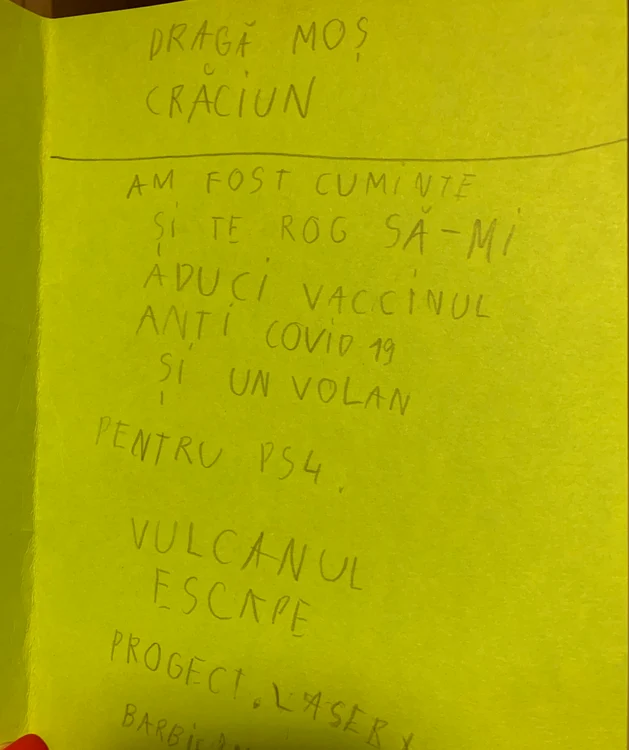 DRAGĂ MOȘ
CRĂCIUN
AM FOST CUMINTE
ȘI TE ROG SĂ-MI
ADUCI VACCINUL
ANTI COVID 19
ȘI UN VOLAN
PENTRU PS4.
VULCANUL
ESCAPE
PROGECT. LASER X